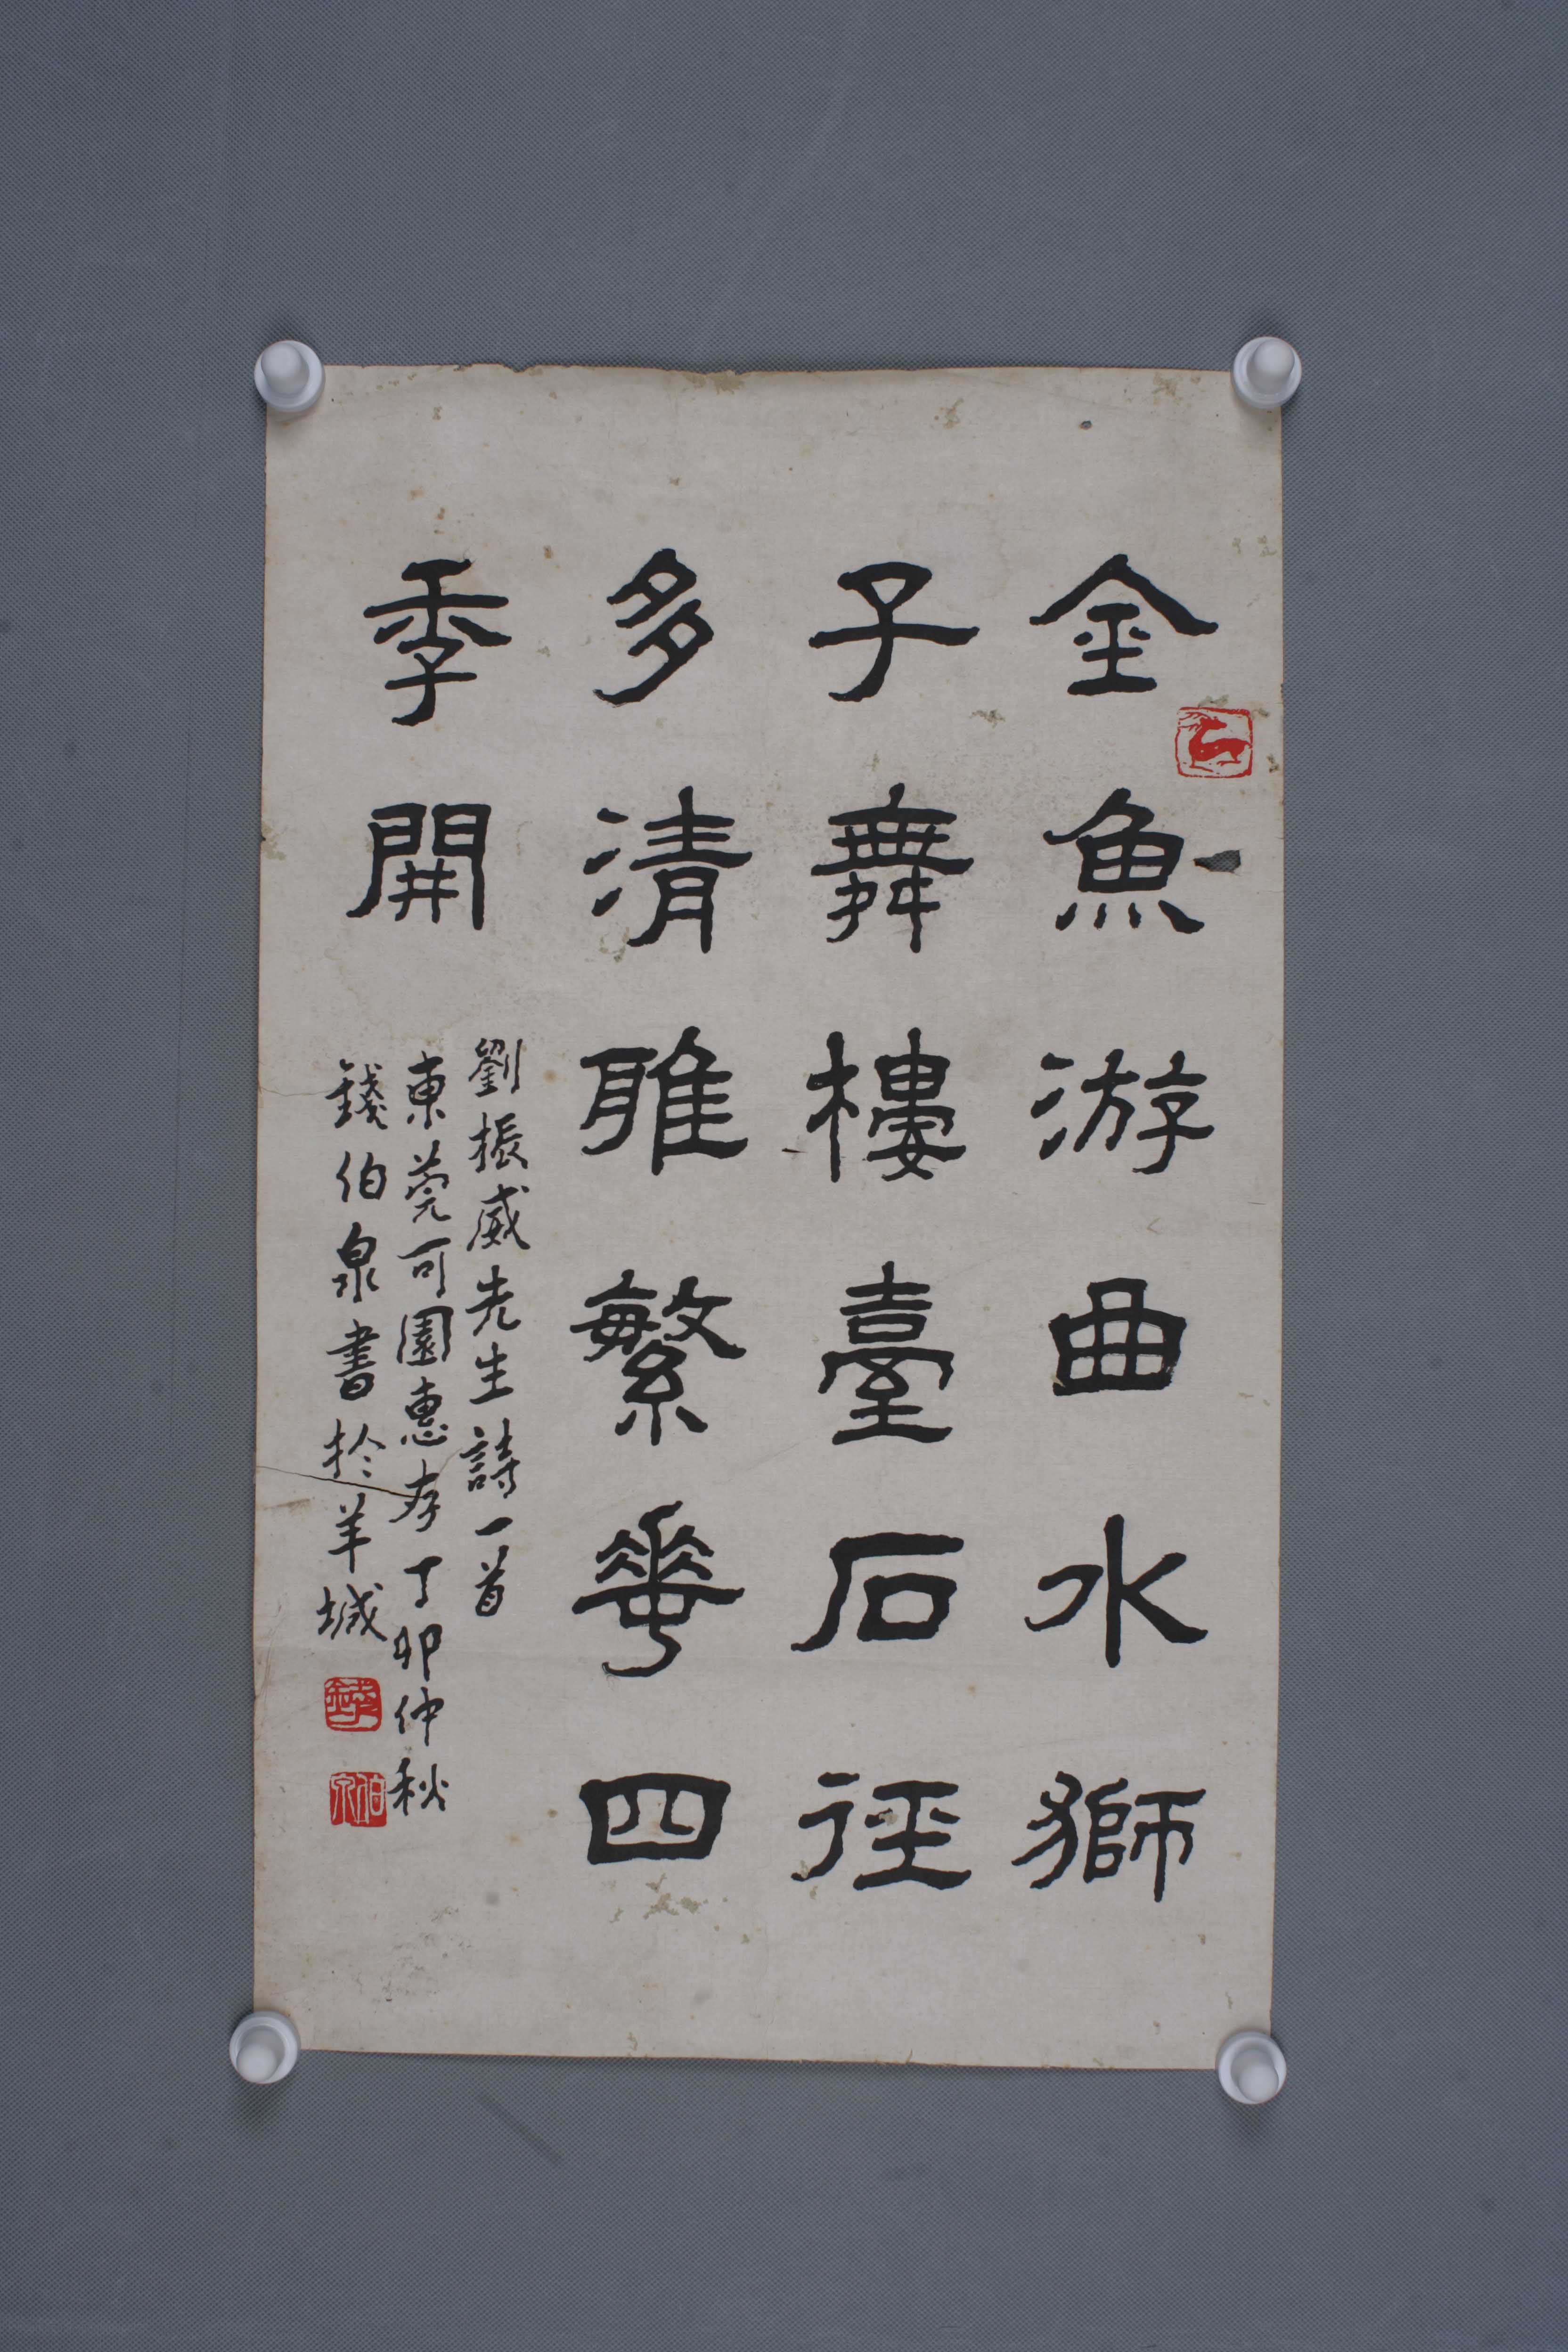 金魚游曲水獅
子舞樓臺石徑
多清雅繁華四
季開
劉振威先生詩一首
東莞可園惠存丁卯仲秋
錢伯泉書於羊城
錢
伯泉